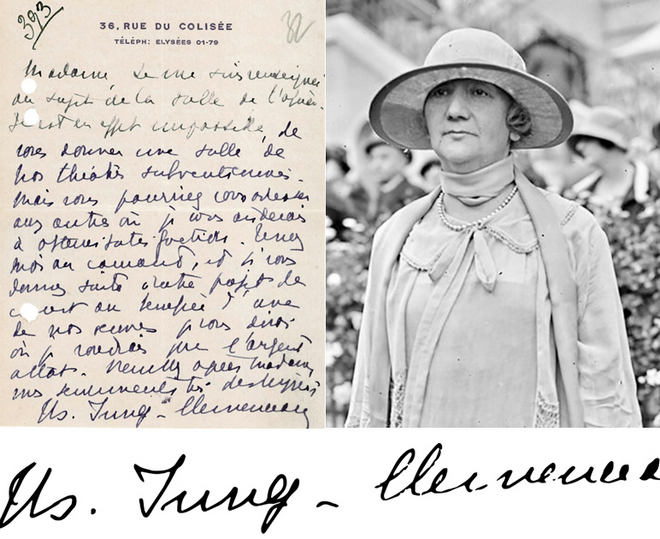 393
32
36, RUE DU COLISÉE
TÉLÉPH: ELYSÉES 01-79
Madame Je me suis renseignée
au sujet de la salle de
Il est en effet impossible, de
vous donner une salle de
nos théâtres subventionnés.
Mais vous pourriez vous adresser
aux autres où je vous aiderais
à satisfaction. Tenez
moi au courant, et si vous
donnez suite à votre projet de
concert au bénéfice d'une
de nos œuvres je vous dirai
où je voudrais que l'argent
allat. Veuillez agréer Madame
mes sentiments très distingués
Jung - Clemenceau
Jung - Clemencea